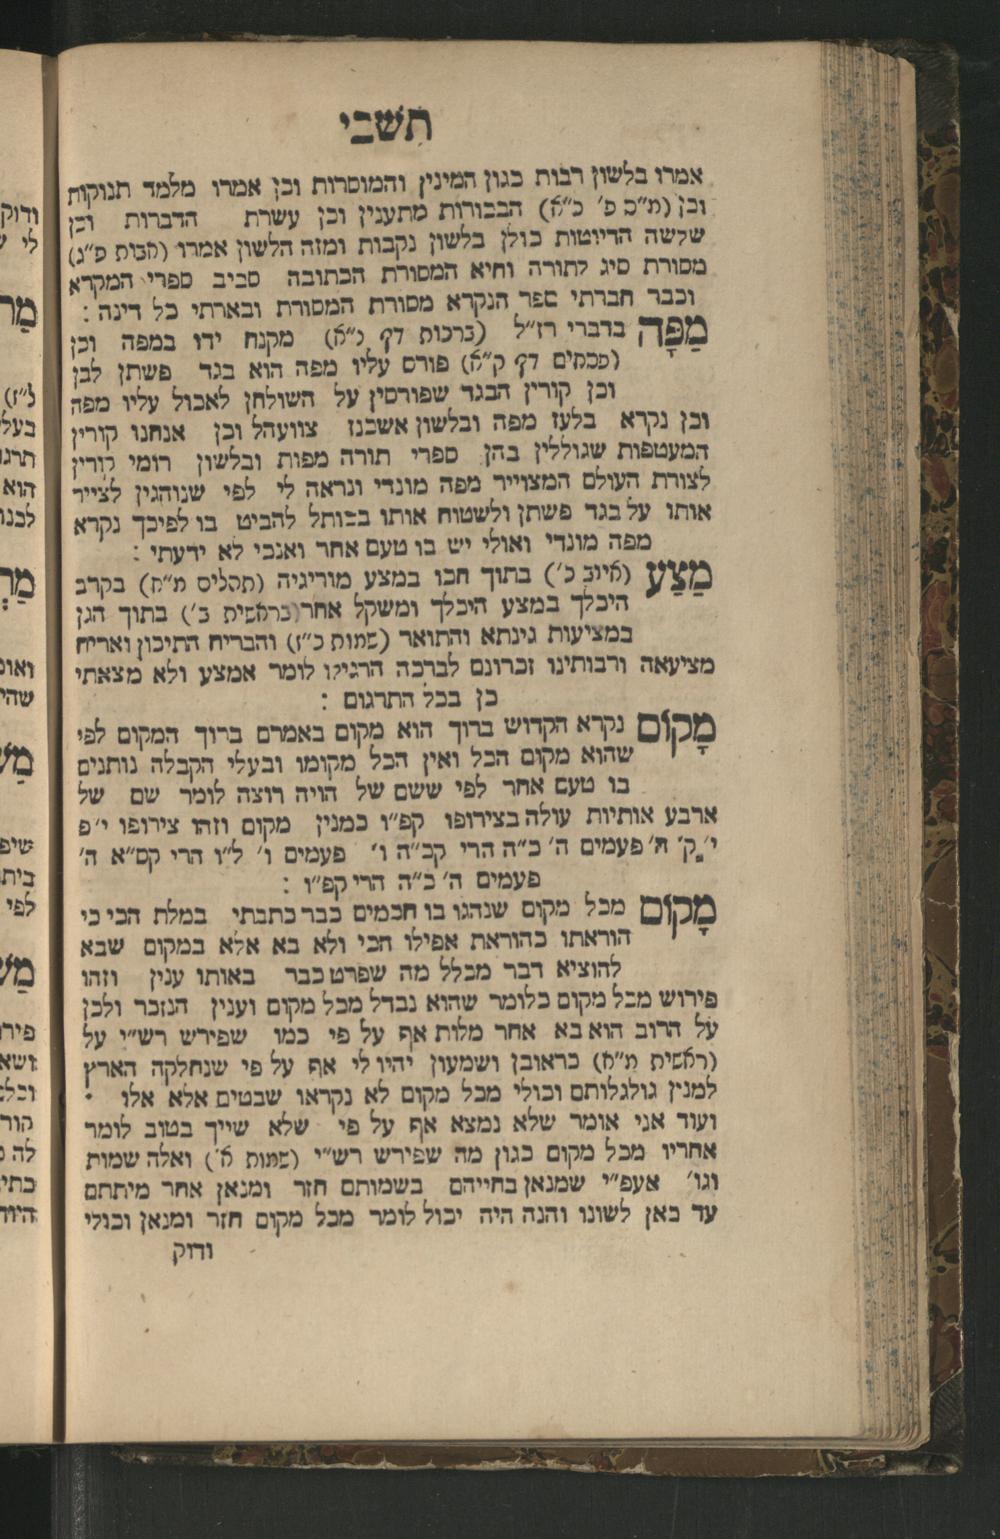 תשבי
אמרו בלשון רבות כגון המינין והמוסרות וכן אמרו מלמד תנוקות
וכן (מ״ס פ׳ כ״א) הבכורות מתענין וכן עשרת הדברות וכן
שלשה הדיוטות כולן בלשון נקבות ומזה הלשון אמרו (אבות פ״ג)
מסורת סיג לתורה וחיא המסורת הכתובה סביב ספרי המקרא
וכבר חברתי ספר הנקרא מסורת המסורת ובארתי כל דינה :
מַפָּה בדברי רז״ל (ברכות דף נ״א) מקנח ידו במפה וכן
(פסחים דף ק״א) פורס עליו מפה הוא בגד פשתן לבן
וכן קורין הבגד שפורסין על השולחן לאכול עליו מפה
וכן נקרא בלעז מפה ובלשון אשכנז צוועהל וכן אנחנו קורין
המעטפות שגוללין בהן ספרי תורה מפות ובלשון רומי קורין
לצורת העולם המצוייר מפה מונדי ונראה לי לפי שנוהגין לצייר
אותו על בגד פשתן ולשטוח אותו בכותל להביט בו לפיכך נקרא
מפה מונדי ואולי יש בו טעם אחר ואנכי לא ידעתי :
מַצַע (איוב כ׳) בתוך חכו במצע מוריגיה (תהליס מ״ח) בקרב
היכלך במצע היכלך ומשקל אחר (בראשית ב׳) בתוך הגן
במציעות גינתא והתואר (שמות כ״ו) והבריח התיכון ואריח
מציעאה ורבותינו זכרונם לברכה הרגילו לומר אמצע ולא מצאתי
כן בכל התרגום :
מָקוֹם נקרא הקדוש ברוך הוא מקום באמרם ברוך המקום לפי
שהוא מקום הכל ואין הכל מקומו ובעלי הקבלה נותנים
בו טעם אחר לפי ששם של הויה רוצה לומר שם של
ארבע אותיות עולה בצירופו קפ״ו כמנין מקום וזהו צירופו י׳ פ
י׳ ק׳ ה׳ פעמים ה׳ כ״ה הרי קכ״ה ו׳ פעמים ו׳ ל״ו הרי קס״א ה׳
פעמים ה׳ כ״ה הרי קפ״ו :
מָקוֹם מכל מקום שנהגו בו חכמים כבר כתבתי במלת הכי כי
הוראתו כהוראת אפילו הכי ולא בא אלא במקום שבא
להוציא דבר מכלל מה שפרט כבר באותו ענין וזהו
פירוש מכל מקום כלומר שהוא נבדל מכל מקום וענין הנזכר ולכן
על הרוב הוא בא אחר מלות אף על פי כמו שפירש רש״י על
(ראשית מ״ח) כראובן ושמעון יהיו לי אף על פי שנחלקה הארץ
למנין גולגלותם וכולי מכל מקום לא נקראו שבטים אלא אלו ׃
ועוד אני אומר שלא נמצא אף על פי שלא שייך בטוב לומר
אחריו מכל מקום כגון מה שפירש רש״י (שמות א׳) ואלה שמות
וגו׳ אעפ״י שמנאן בחייהם בשמותם חזר ומנאן אחר מיתתם
עד כאן לשונו והנה היה יכול לומר מכל מקום חזר ומנאן וכולי
ודוק